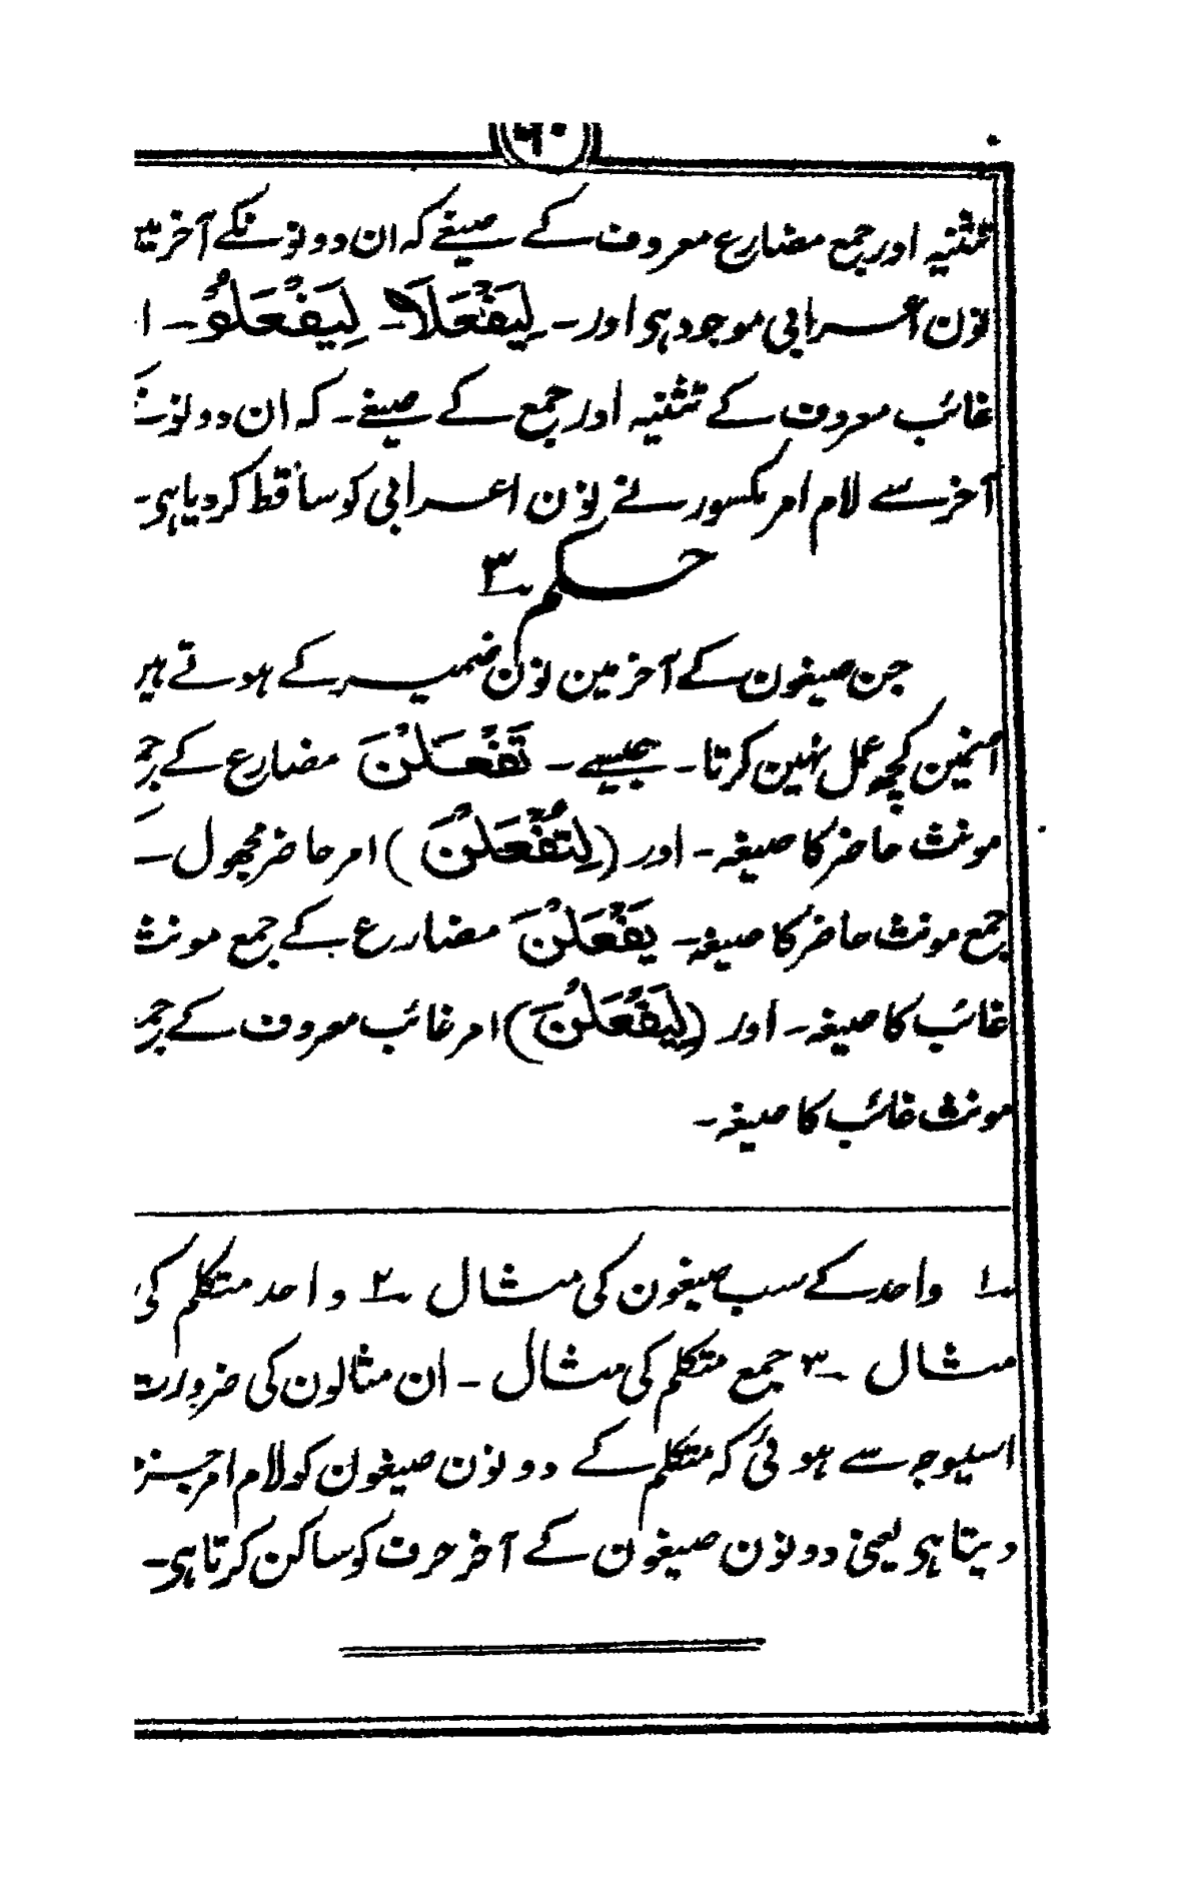 ۶۰
تثنیہ اور جمع مضارع معروف کے صیغے کہ ان دونونکے آخر میں
نون اعرابی موجود ہی اور۔ لِیَفْعَلَا۔ لِیَفْعَلُوْ۔ ا
غائب معروف کے تثنیہ اور جمع کے صیغے۔ کہ ان دونون
آخر سے لام امر مکسور نے نون اعرابی کو ساقط کر دیا ہی۔
حکم ۳
جن صیغون کے آخر مین نون ضمیر کے ہوتے ہین
انمین کچھ عمل نہین کرتا۔ جیسے۔ تَفْعَلْنَ مضارع کے جمع
مونث حاضر کا صیغہ۔ اور (لِتُفْعَلْنَ) امر حاضر مجھول کے
جمع مونث حاضر کا صیغہ۔ یَفْعَلْنَ مضارع کے جمع مونث
غائب کا صیغہ۔ اور (لِیَفْعَلْنَ) امر غائب معروف کے جمع
مونث غائب کا صیغہ۔
۱ واحد کے سب صیغون کی مثال ۲ واحد متکلم کی
مثال ۳ جمع متکلم کی مثال۔ ان مثالون کی ضرورت
اسیوجہ سے ہوئی کہ متکلم کے دونون صیغون کو لام امر جزم
دیتا ہی یعنی دونون صیغون کے آخر حرف کو ساکن کرتا ہی۔